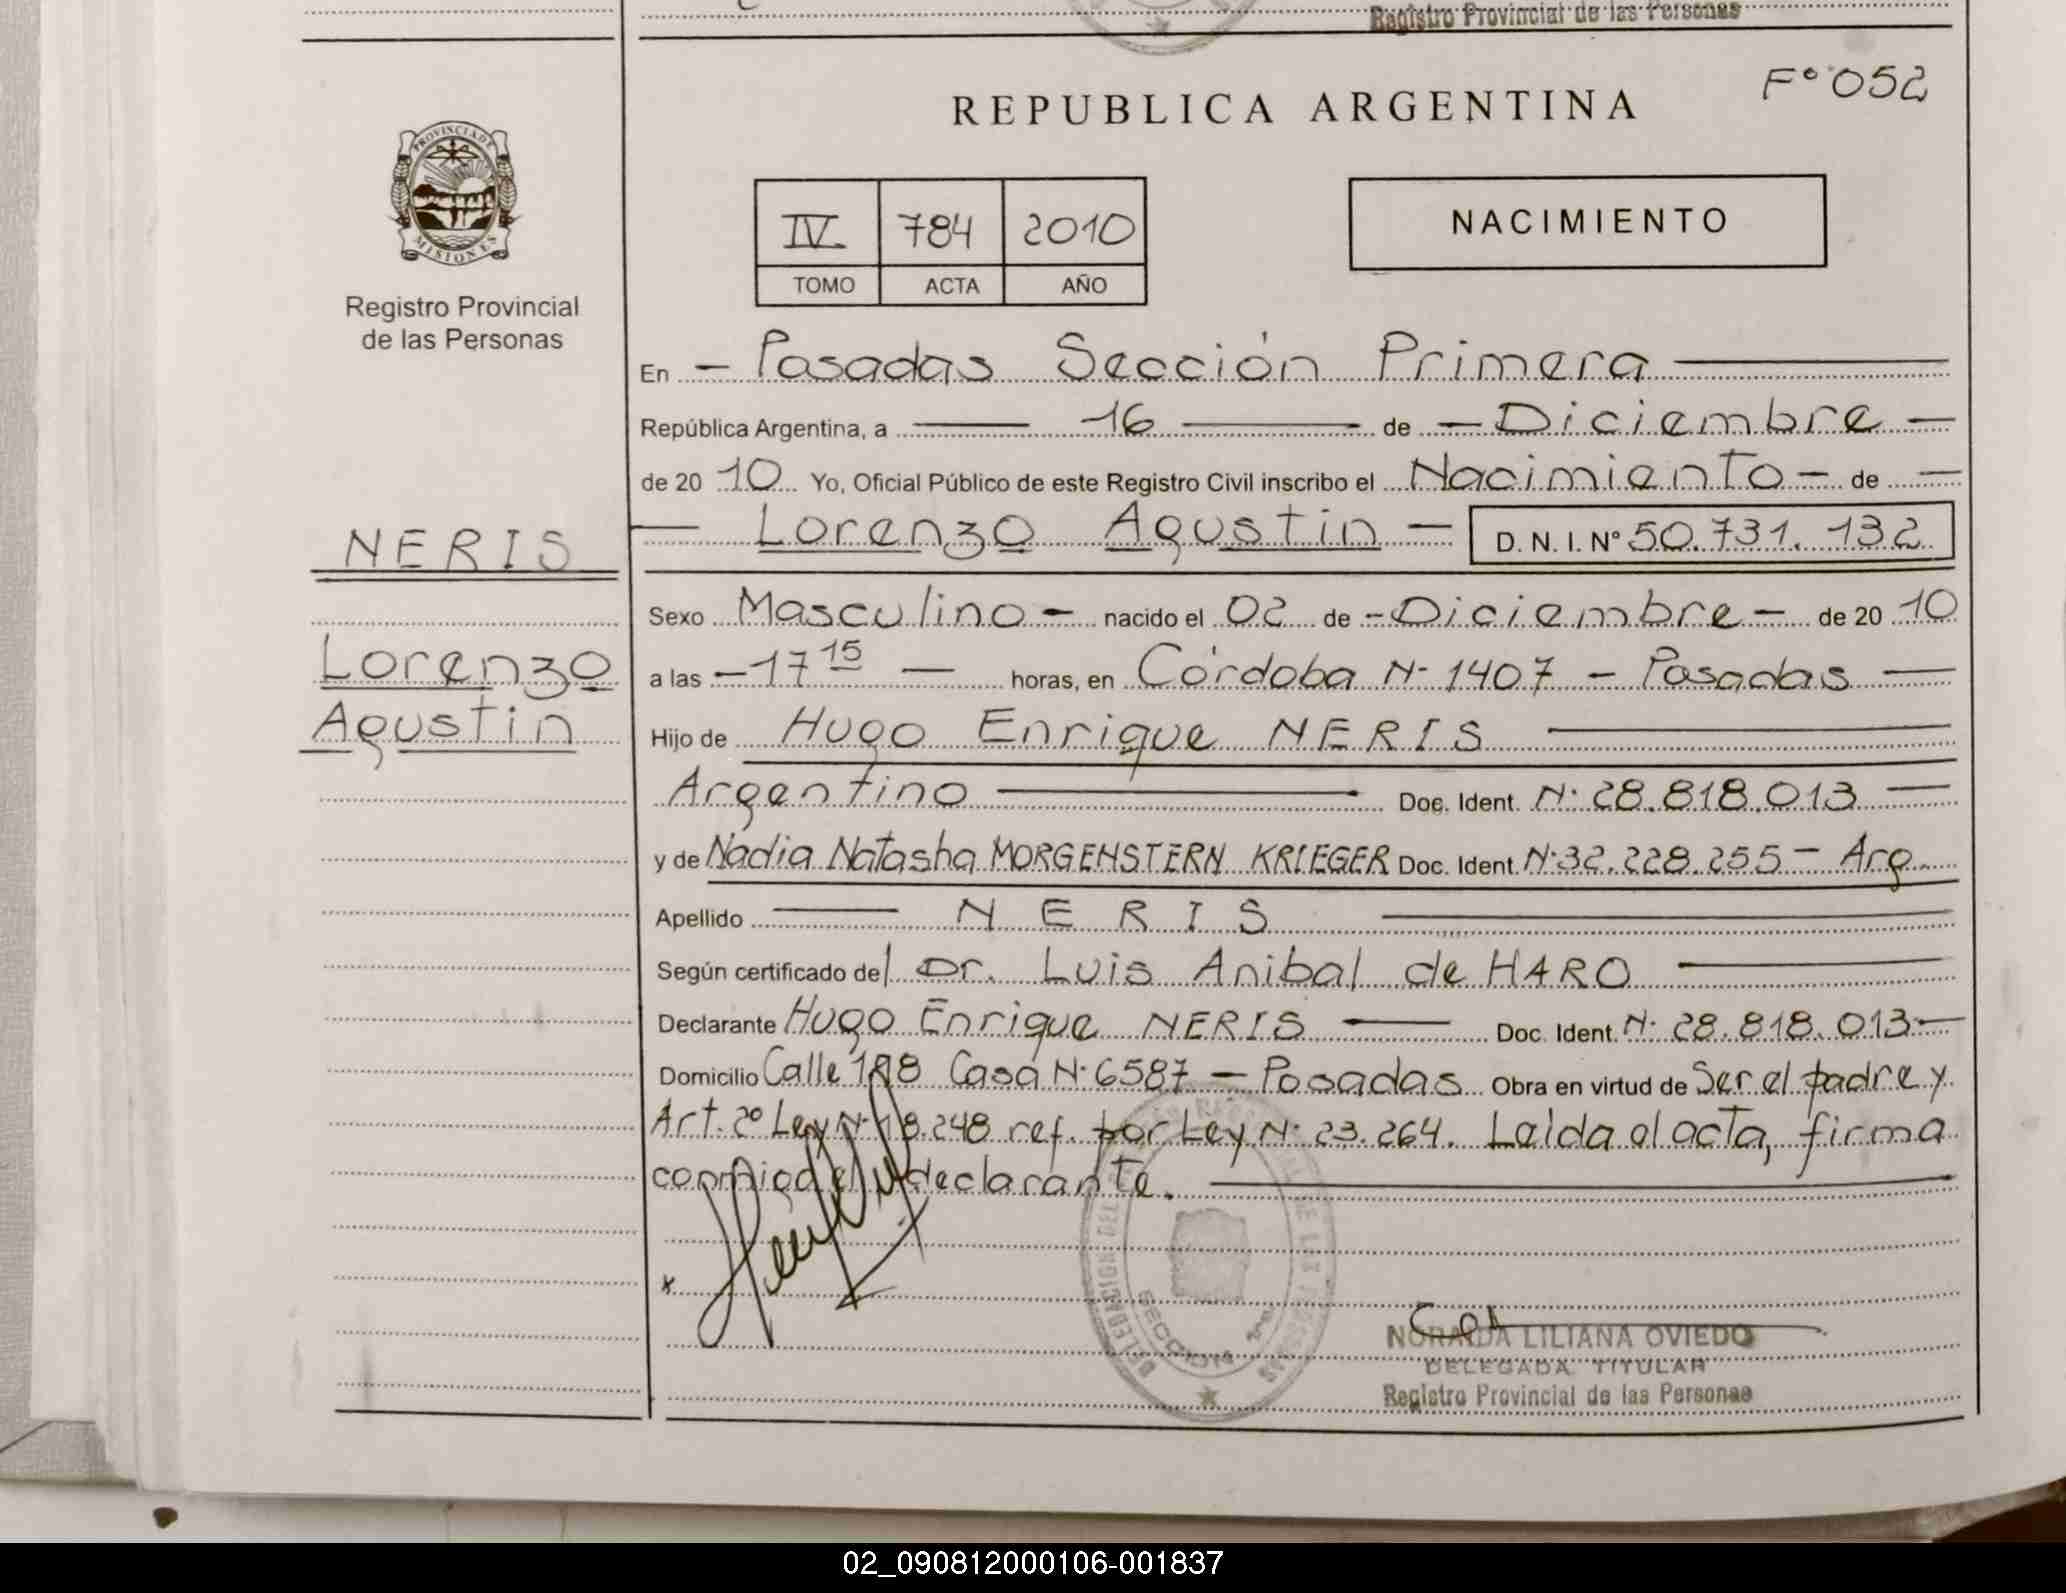 Registro Provincial de las Personas
F° 052
REPUBLICA ARGENTINA
PROVINCIA DE
MISIONES
IV 784 2010
TOMO ACTA AÑO
NACIMIENTO
Registro Provincial
de las Personas
En - Posadas Sección Primera
República Argentina, a 16 de - Diciembre -
de 20 10 Yo, Oficial Público de este Registro Civil inscribo el Nacimiento - de
NERIS
Lorenzo Agustin - D. N. I. N° 50.731.132
Sexo Masculino - nacido el 02 de - Diciembre - de 20 10
Lorenzo
a las - 17 15 - horas, en Córdoba N· 1407 - Posadas
Agustin
Hijo de Hugo Enrique NERIS
Argentino Doc. Ident. N· 28.818.013
y de Nadia Natasha MORGENSTERN KRIEGER Doc. Ident. N· 32.228.255 - Arg
Apellido NERIS
Según certificado del Dr. Luis Anibal de HARO
Declarante Hugo Enrique NERIS Doc. Ident. N· 28.818.013
Domicilio Calle Casa N· 6587 - Posadas Obra en virtud de Ser el padre y
Art. 2° Ley N· 18.248 ref. por Ley N· 23.264. Leida el acta, firma
conmigo el declarante.
x
SECCION
NORAIDA LILIANA OVIEDO
DELEGADA TITULAR
Registro Provincial de las Personas
02_090812000106-001837